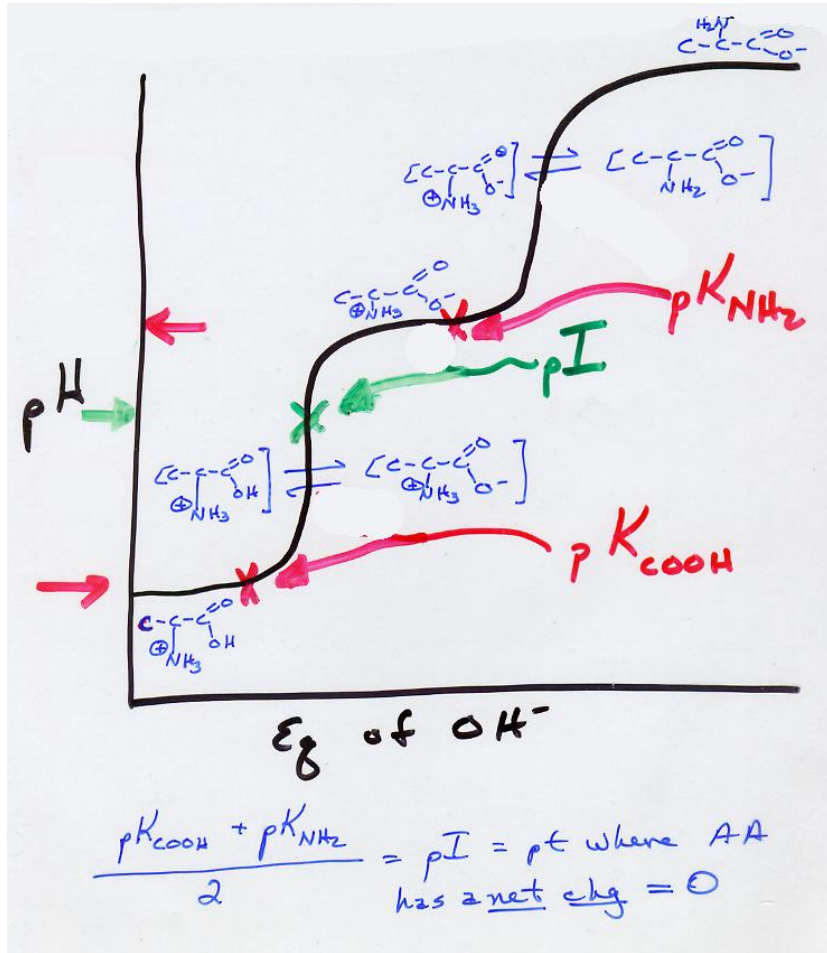 H₂N
C-C-C=O
O⁻
[C-C-C=O O⁻ ⊕NH₃] ⇌ [C-C-C=O O⁻ NH₂]
C-C-C=O O⁻ ⊕NH₃
pK NH₂
pI
pH
[C-C-C=O OH ⊕NH₃] ⇌ [C-C-C=O O⁻ ⊕NH₃]
pK COOH
C-C-C=O OH ⊕NH₃
Eq of OH⁻
pK COOH + pK NH₂
2
= pI = pt where AA
has a net chg = 0